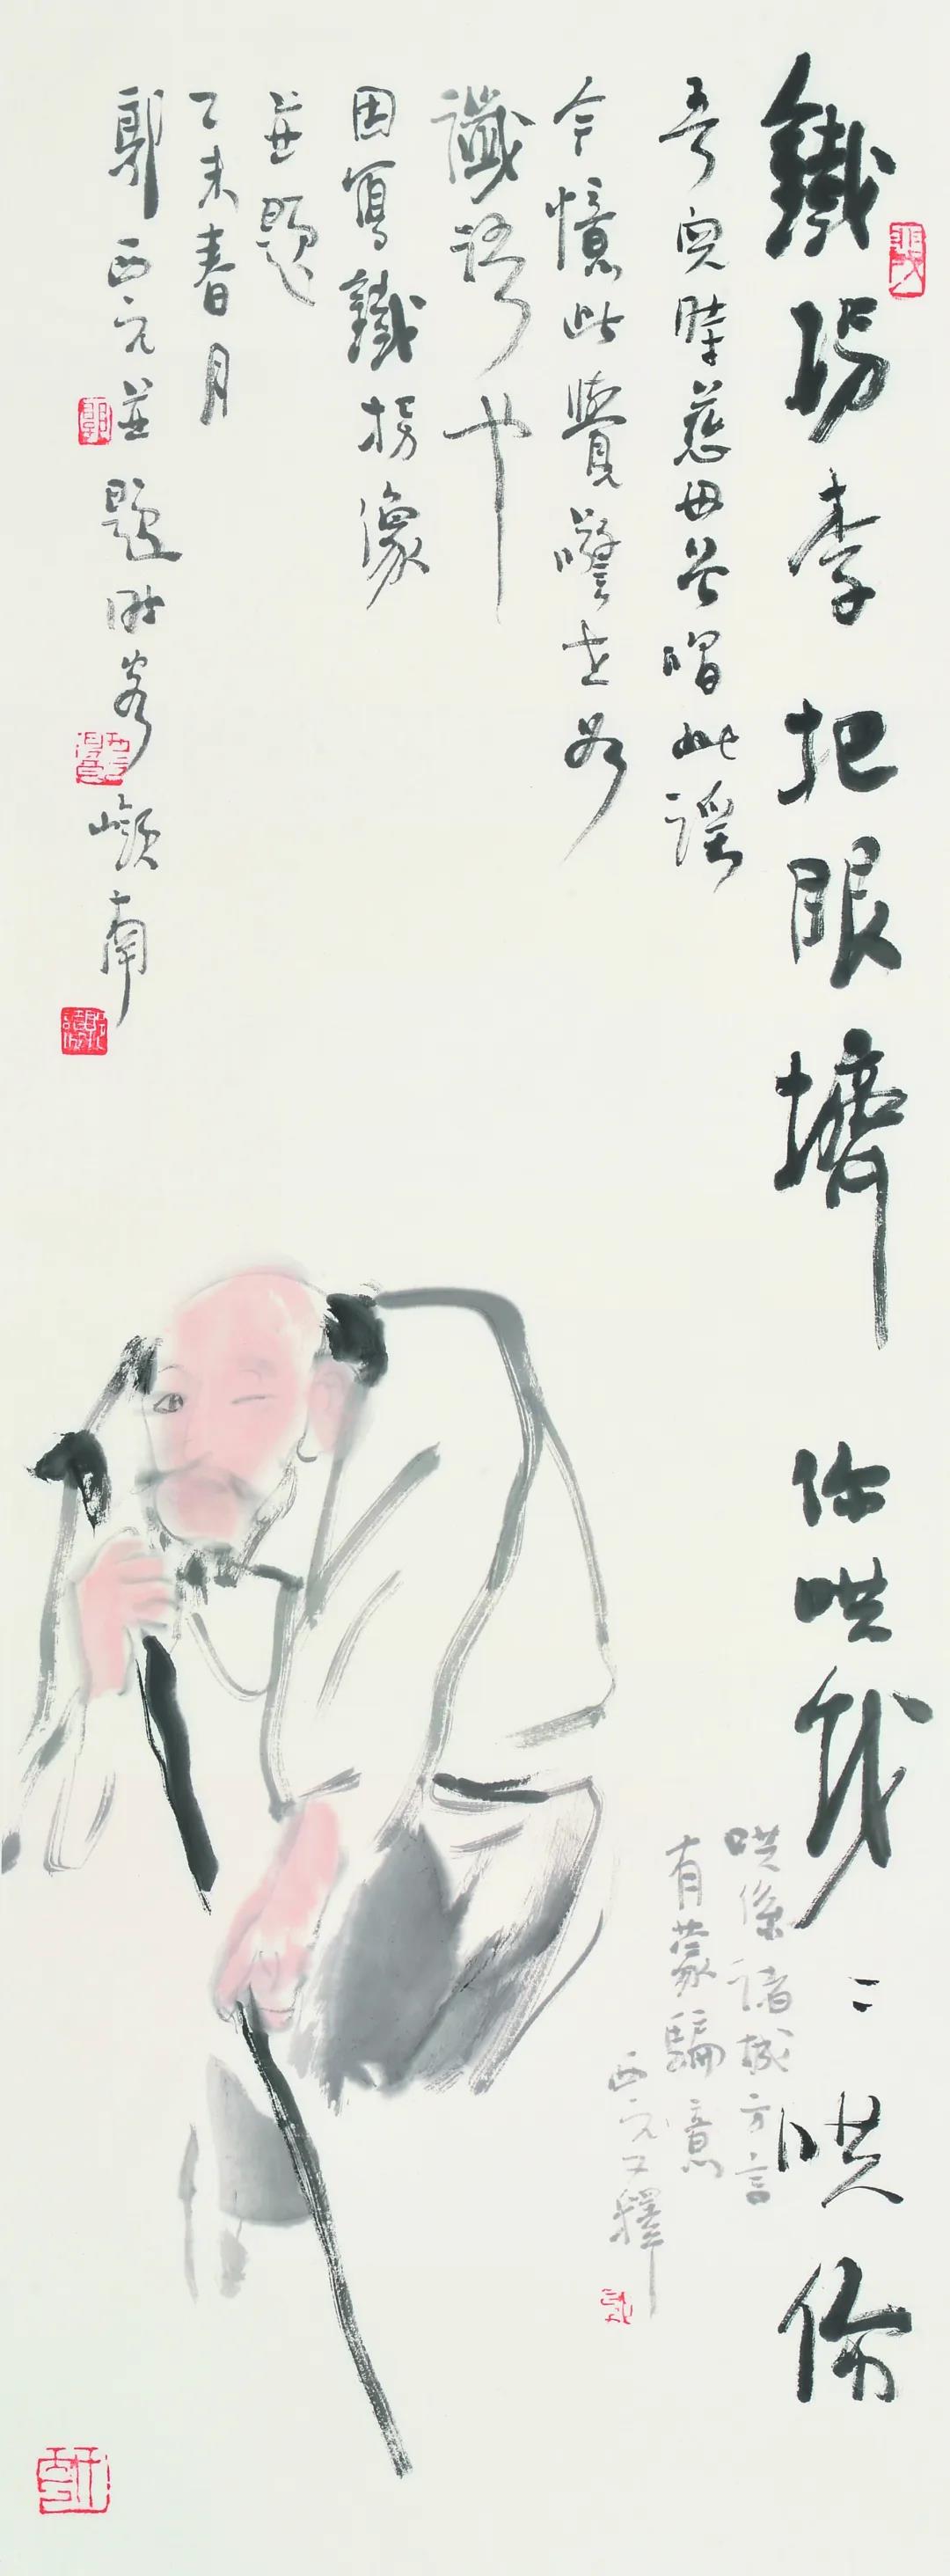 鐵拐李把眼擠 你哄我〻哄你
吾兒時慈母唱此謠
今憶此覺警世如
讖語也
因寫鐵拐像
並題
乙未春月
郭西元並題時客嶺南
哄係諸城方言
有蒙騙意
西元又釋